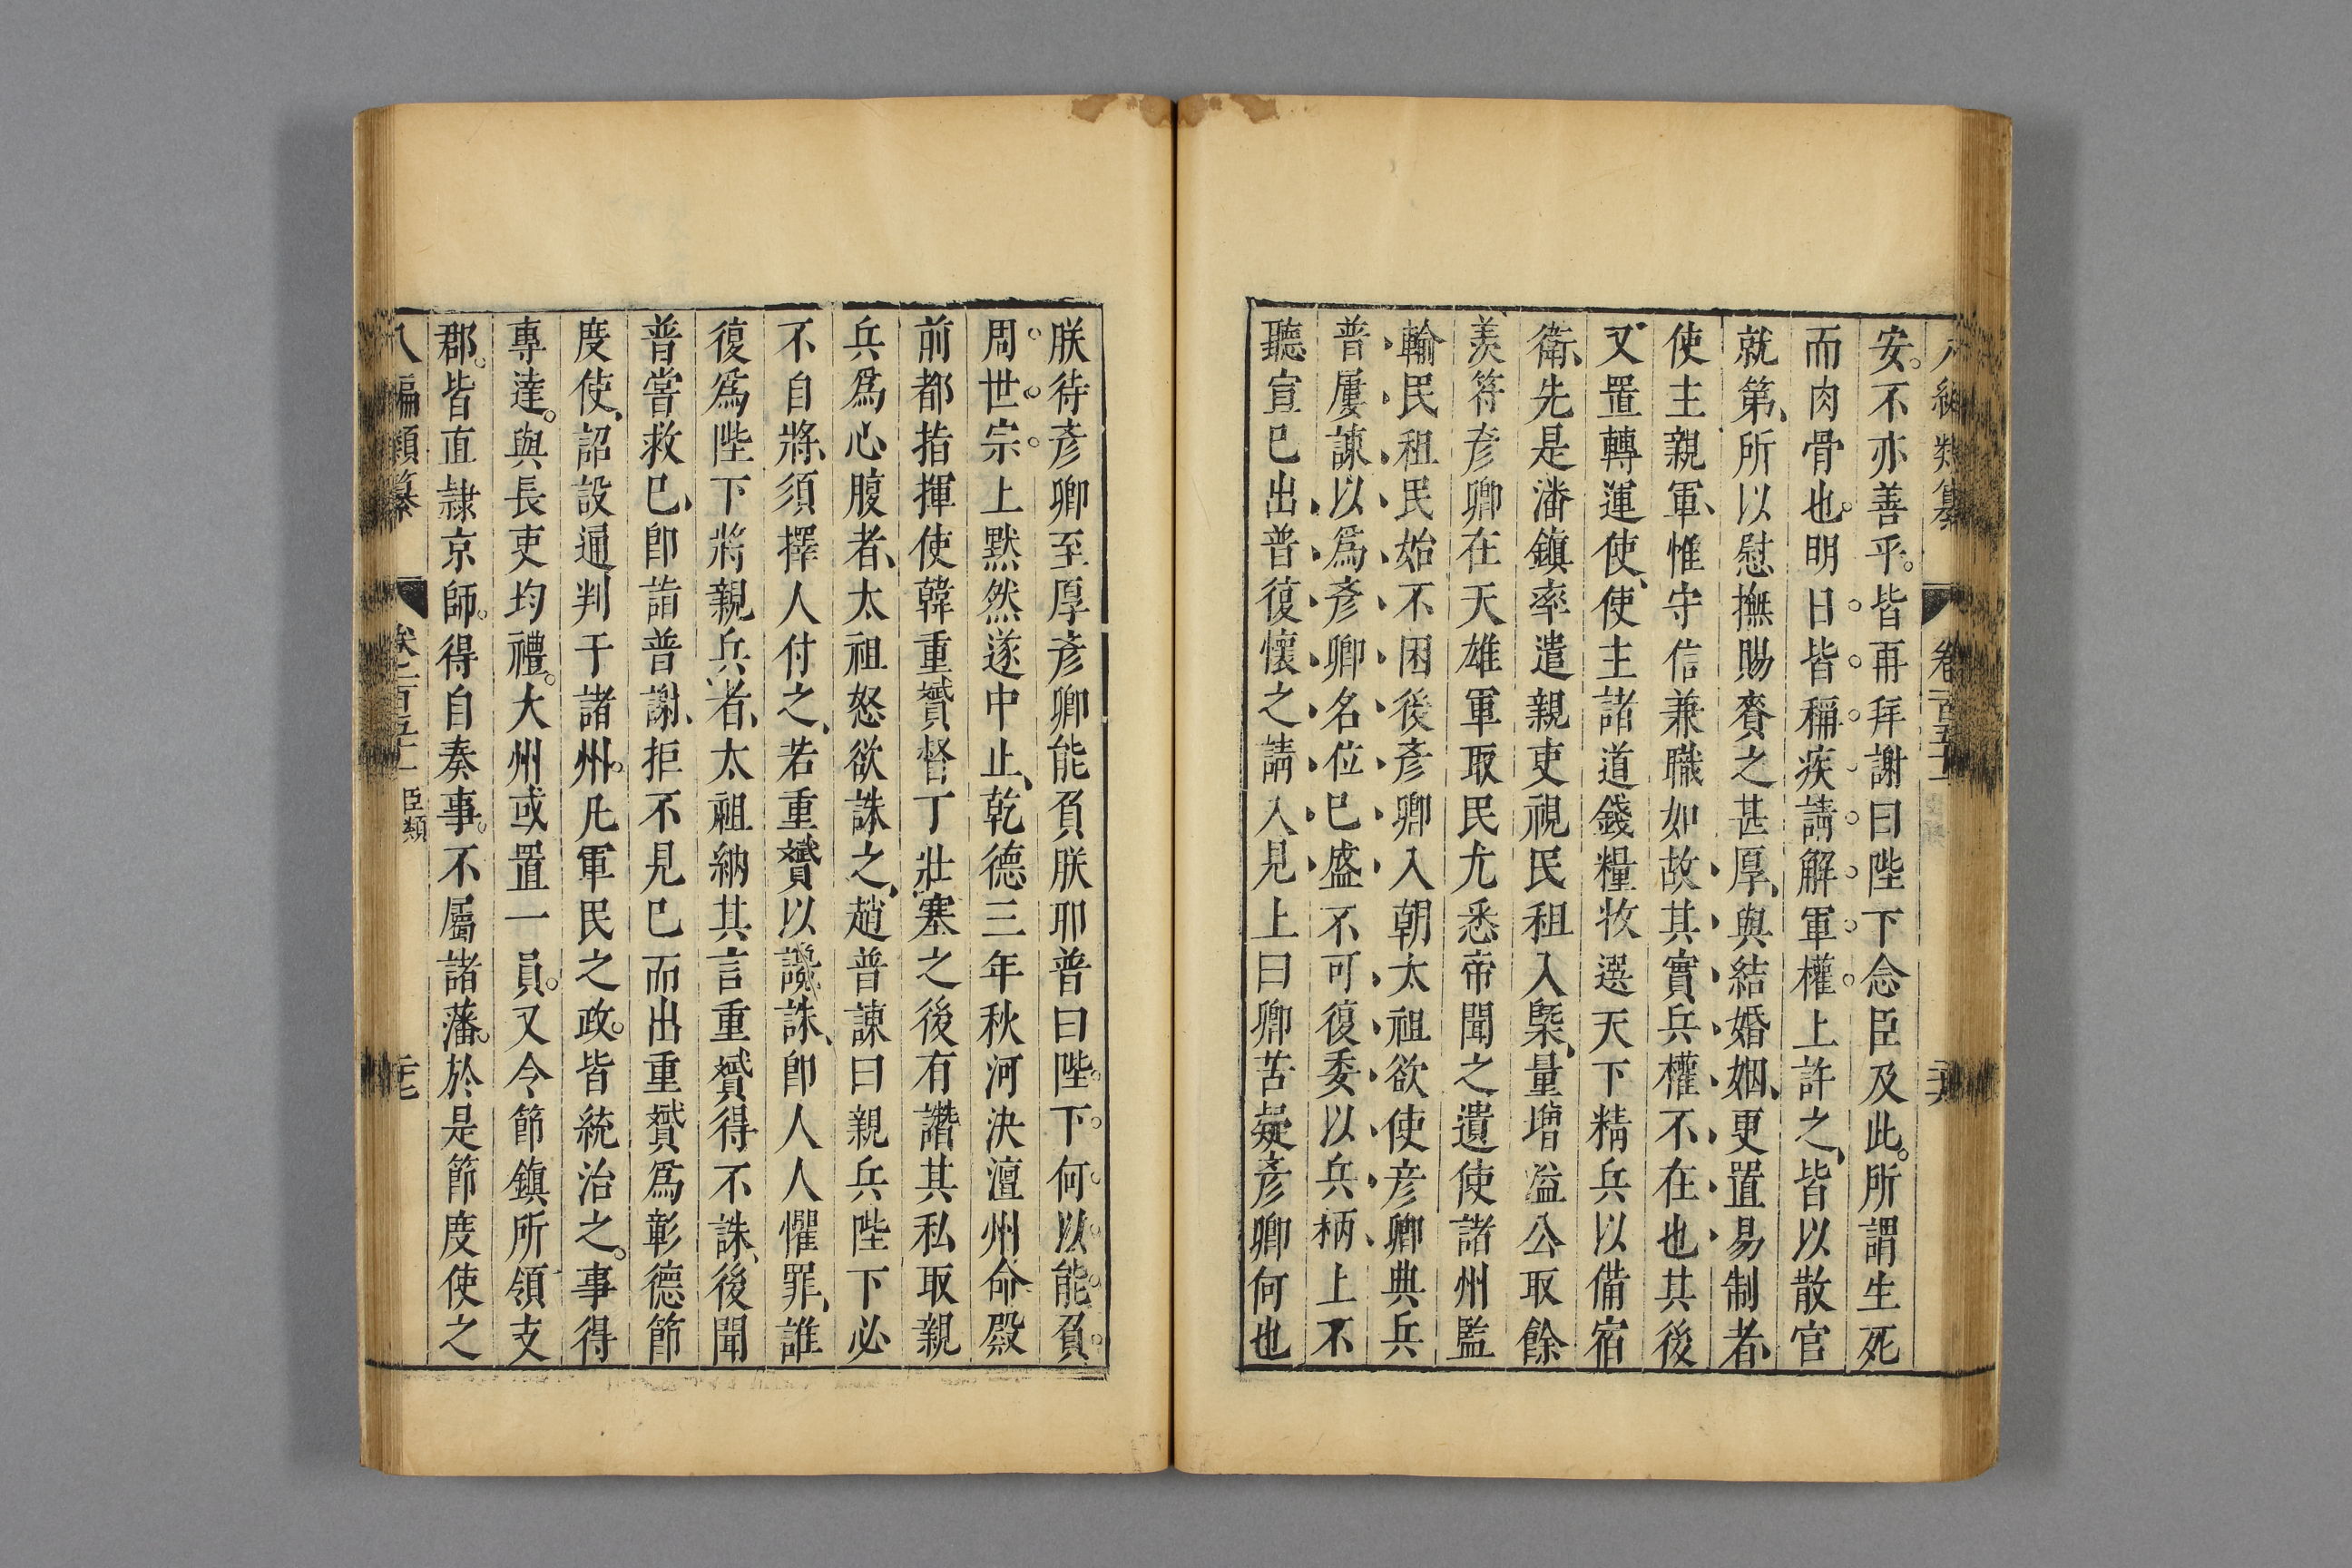 八編類纂 卷二百五十一 二十六
安不亦善乎皆再拜謝曰陛下念臣及此所謂生死
而肉骨也明日皆稱疾請解軍權上許之皆以散官
就第所以慰撫賜賚之甚厚與結婚姻更置易制者
使主親軍惟守信兼職如故其實兵權不在也其後
又置轉運使使主諸道錢糧收選天下精兵以備宿
衛先是潘鎮率遣親吏視民租入槩量增溢公取餘
羨符彥卿在天雄軍取民尤悉帝聞之遣使諸州監
輸民租民始不困後彥卿入朝太祖欲使彥卿典兵
普屢諫以爲彥卿名位已盛不可復委以兵柄上不
聽宣已出普復懷之請入見上曰卿苦疑彥卿何也
朕待彥卿至厚彥卿能負朕耶普曰陛下何以能負
周世宗上默然遂中止乾德三年秋河決澶州命殿
前都指揮使韓重贇督丁壯塞之後有譖其私取親
兵爲心腹者太祖怒欲誅之趙普諫曰親兵陛下必
不自將須擇人付之若重贇以讒誅卽人人懼罪誰
復爲陛下將親兵者太祖納其言重贇得不誅後聞
普嘗救已卽詣普謝拒不見已而出重贇爲彰德節
度使詔設通判于諸州凡軍民之政皆統治之事得
專達與長吏均禮大州或置一員又令節鎮所領支
郡皆直隷京師得自奏事不屬諸藩於是節度使之
八編類纂 卷二百五十一 臣類 二十七